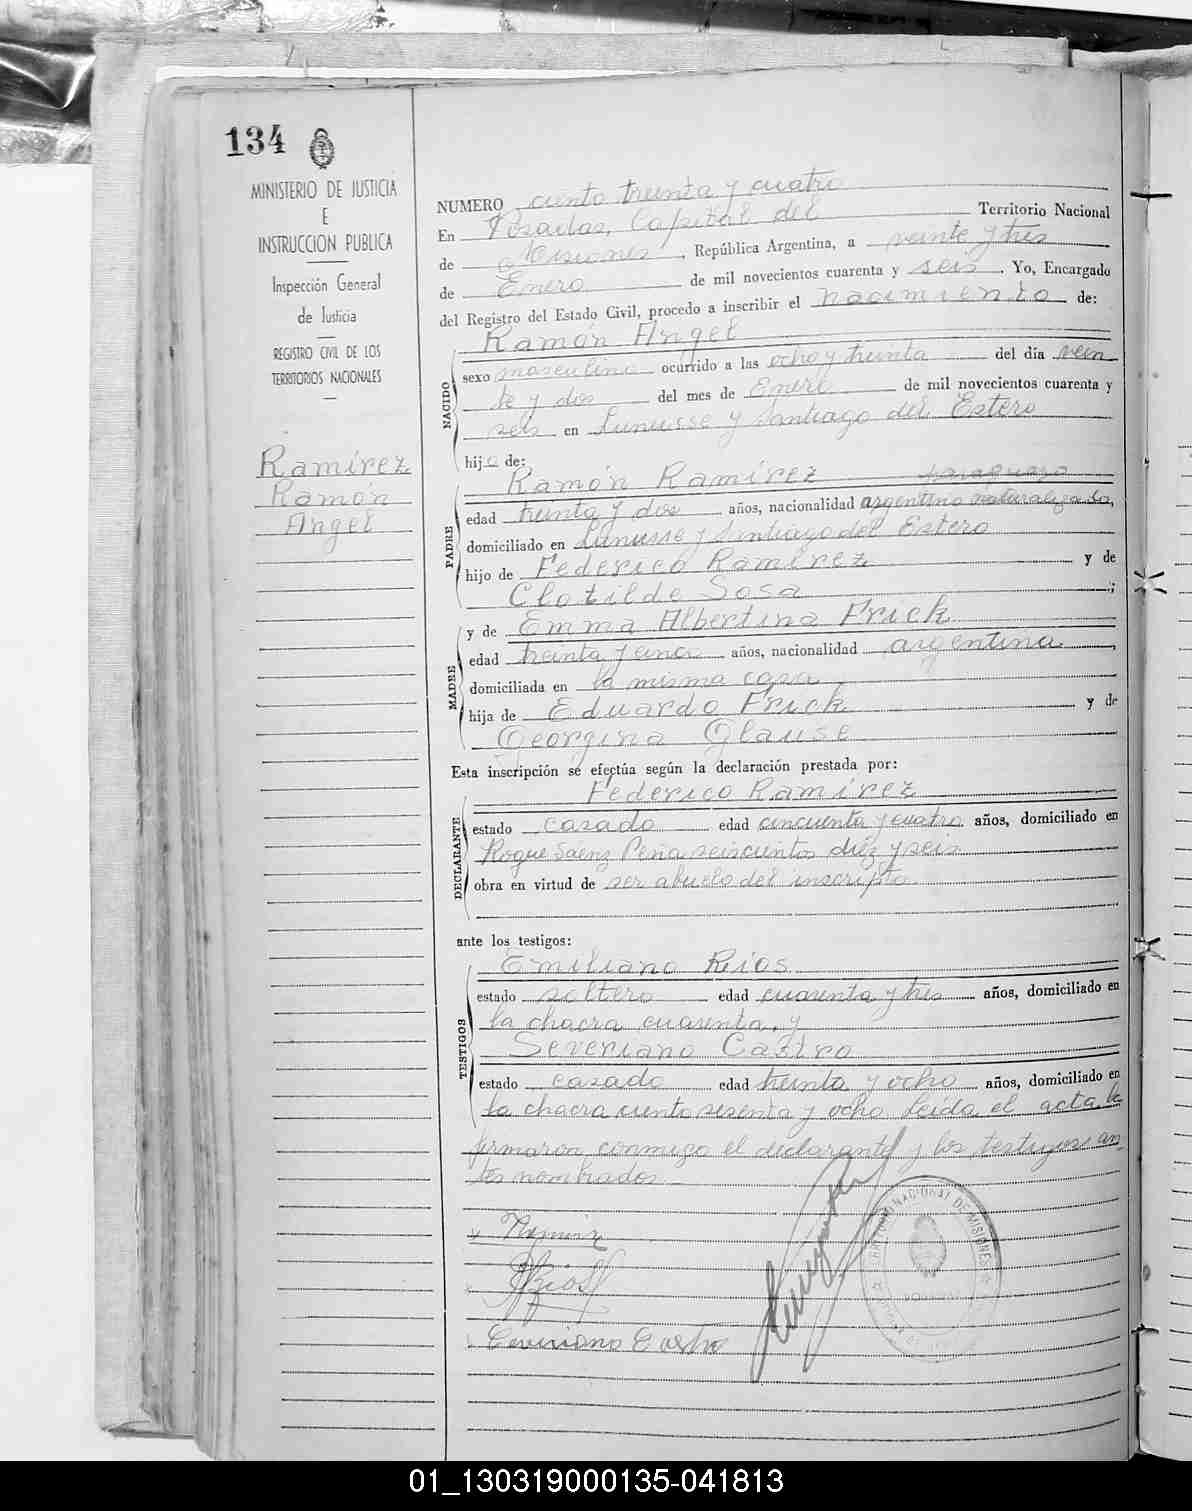 134
MINISTERIO DE JUSTICIA
E
INSTRUCCION PUBLICA
Inspección General
de Justicia
REGISTRO CIVIL DE LOS
TERRITORIOS NACIONALES
Ramírez
Ramón
Angel
NUMERO ciento treinta y cuatro
En Posadas, Capital del Territorio Nacional
de Misiones, República Argentina, a veinte y tres
de Enero de mil novecientos cuarenta y seis. Yo, Encargado
del Registro del Estado Civil, procedo a inscribir el nacimiento de:
NACIDO
Ramón Angel
sexo masculino ocurrido a las ocho y treinta del día vein
te y dos del mes de Enero de mil novecientos cuarenta y
seis en Lanusse y Santiago del Estero
hijo de:
PADRE
Ramón Ramírez paraguayo
edad treinta y dos años, nacionalidad argentino naturalizado,
domiciliado en Lanusse y Santiago del Estero
hijo de Federico Ramírez y de
Clotilde Sosa ;
MADRE
y de Emma Albertina Frick
edad treinta y una años, nacionalidad argentina,
domiciliada en la misma casa
hija de Eduardo Frick y de
Georgina Glause
Esta inscripción se efectúa según la declaración prestada por:
DECLARANTE
Federico Ramírez
estado casado edad cincuenta y cuatro años, domiciliado en
Roque Saenz Peña seiscientos diez y seis
obra en virtud de ser abuelo del inscripto
ante los testigos:
TESTIGOS
Emiliano Rios
estado soltero edad cuarenta y tres años, domiciliado en
la chacra cuarenta, y
Severiano Castro
estado casado edad treinta y ocho años, domiciliado en
la chacra ciento sesenta y ocho Leída el acta la
firmaron conmigo el declarante y los testigos an
tes nombrados.
Ramirez
Rios
Severiano Castro
TERRITORIO NACIONAL DE MISIONES
01_130319000135-041813